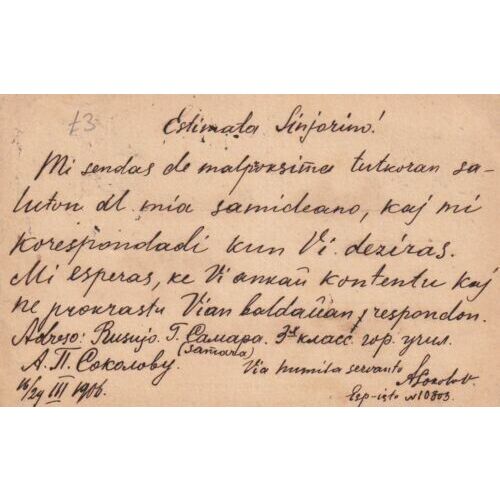 £3
Estimata Sinjorino!
Mi sendas de malproksima tutkoran sa-
luton al mia samideano, kaj mi
korespondadi kun Vi deziras.
Mi esperas, ke Vi ankaŭ kontentu kaj
ne prokrastu Vian baldaŭan respondon.
Adreso: Rusujo. Г. Самара. 3й класс. гор. учил.
(Samara)
А. П. Соколову.
Via humila servanto
ASokolov
16/29 III 1906.
Esp-isto № 10803.